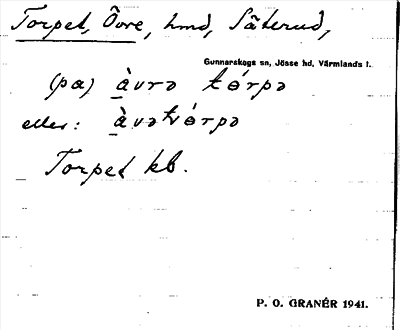 Torpet, Övre, hmd, Säterud,
Gunnarskogs sn, Jösse hd, Värmlands l.
(pa) àvrə tórpə
eller: àvətórpə
Torpet kb.
P. O. GRANÉR 1941.